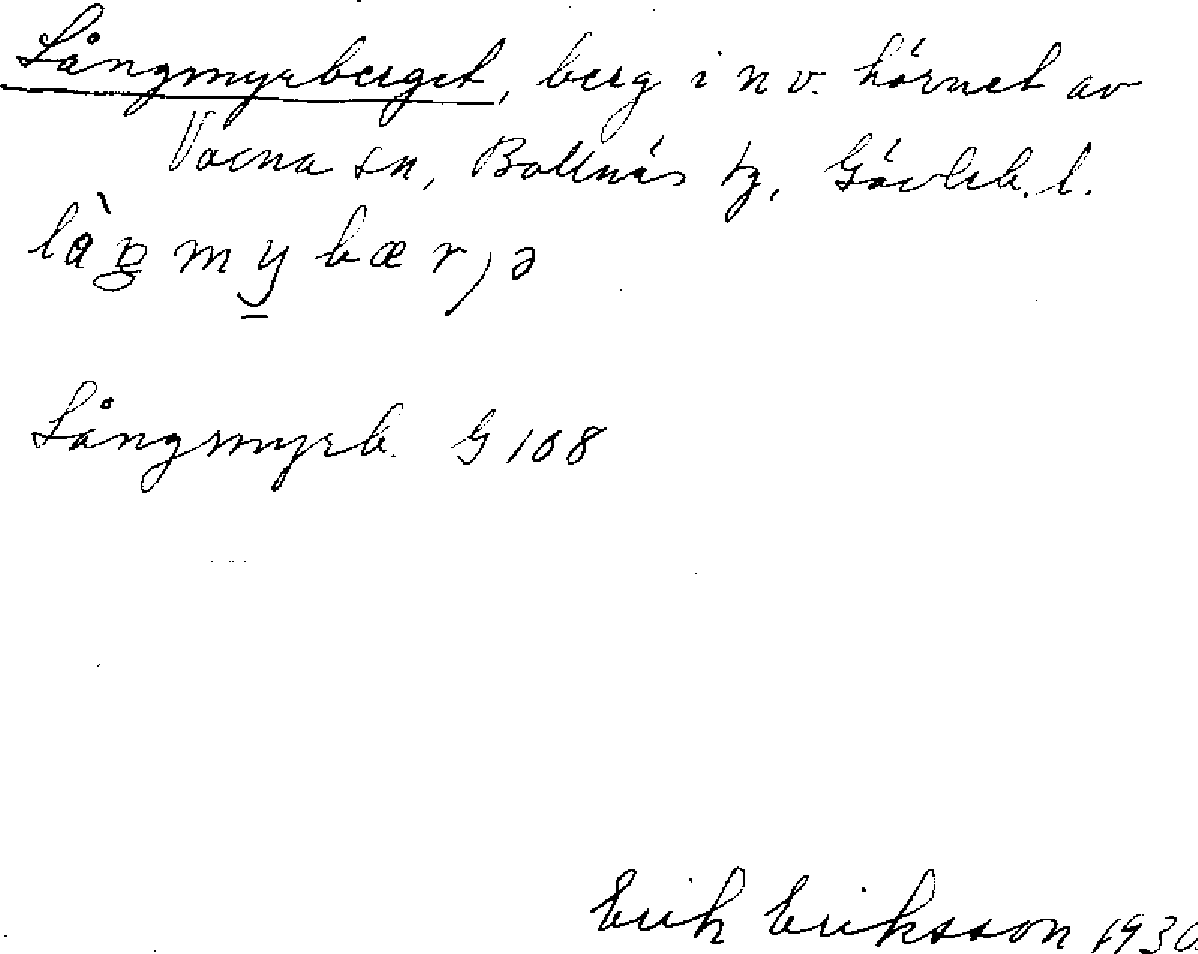 Långmyrberget, berg i n v. hörnet av
Voxna sn, Bollnäs tg, Gävleb. l.
Långmyrb. G 108
Erik Eriksson 1930